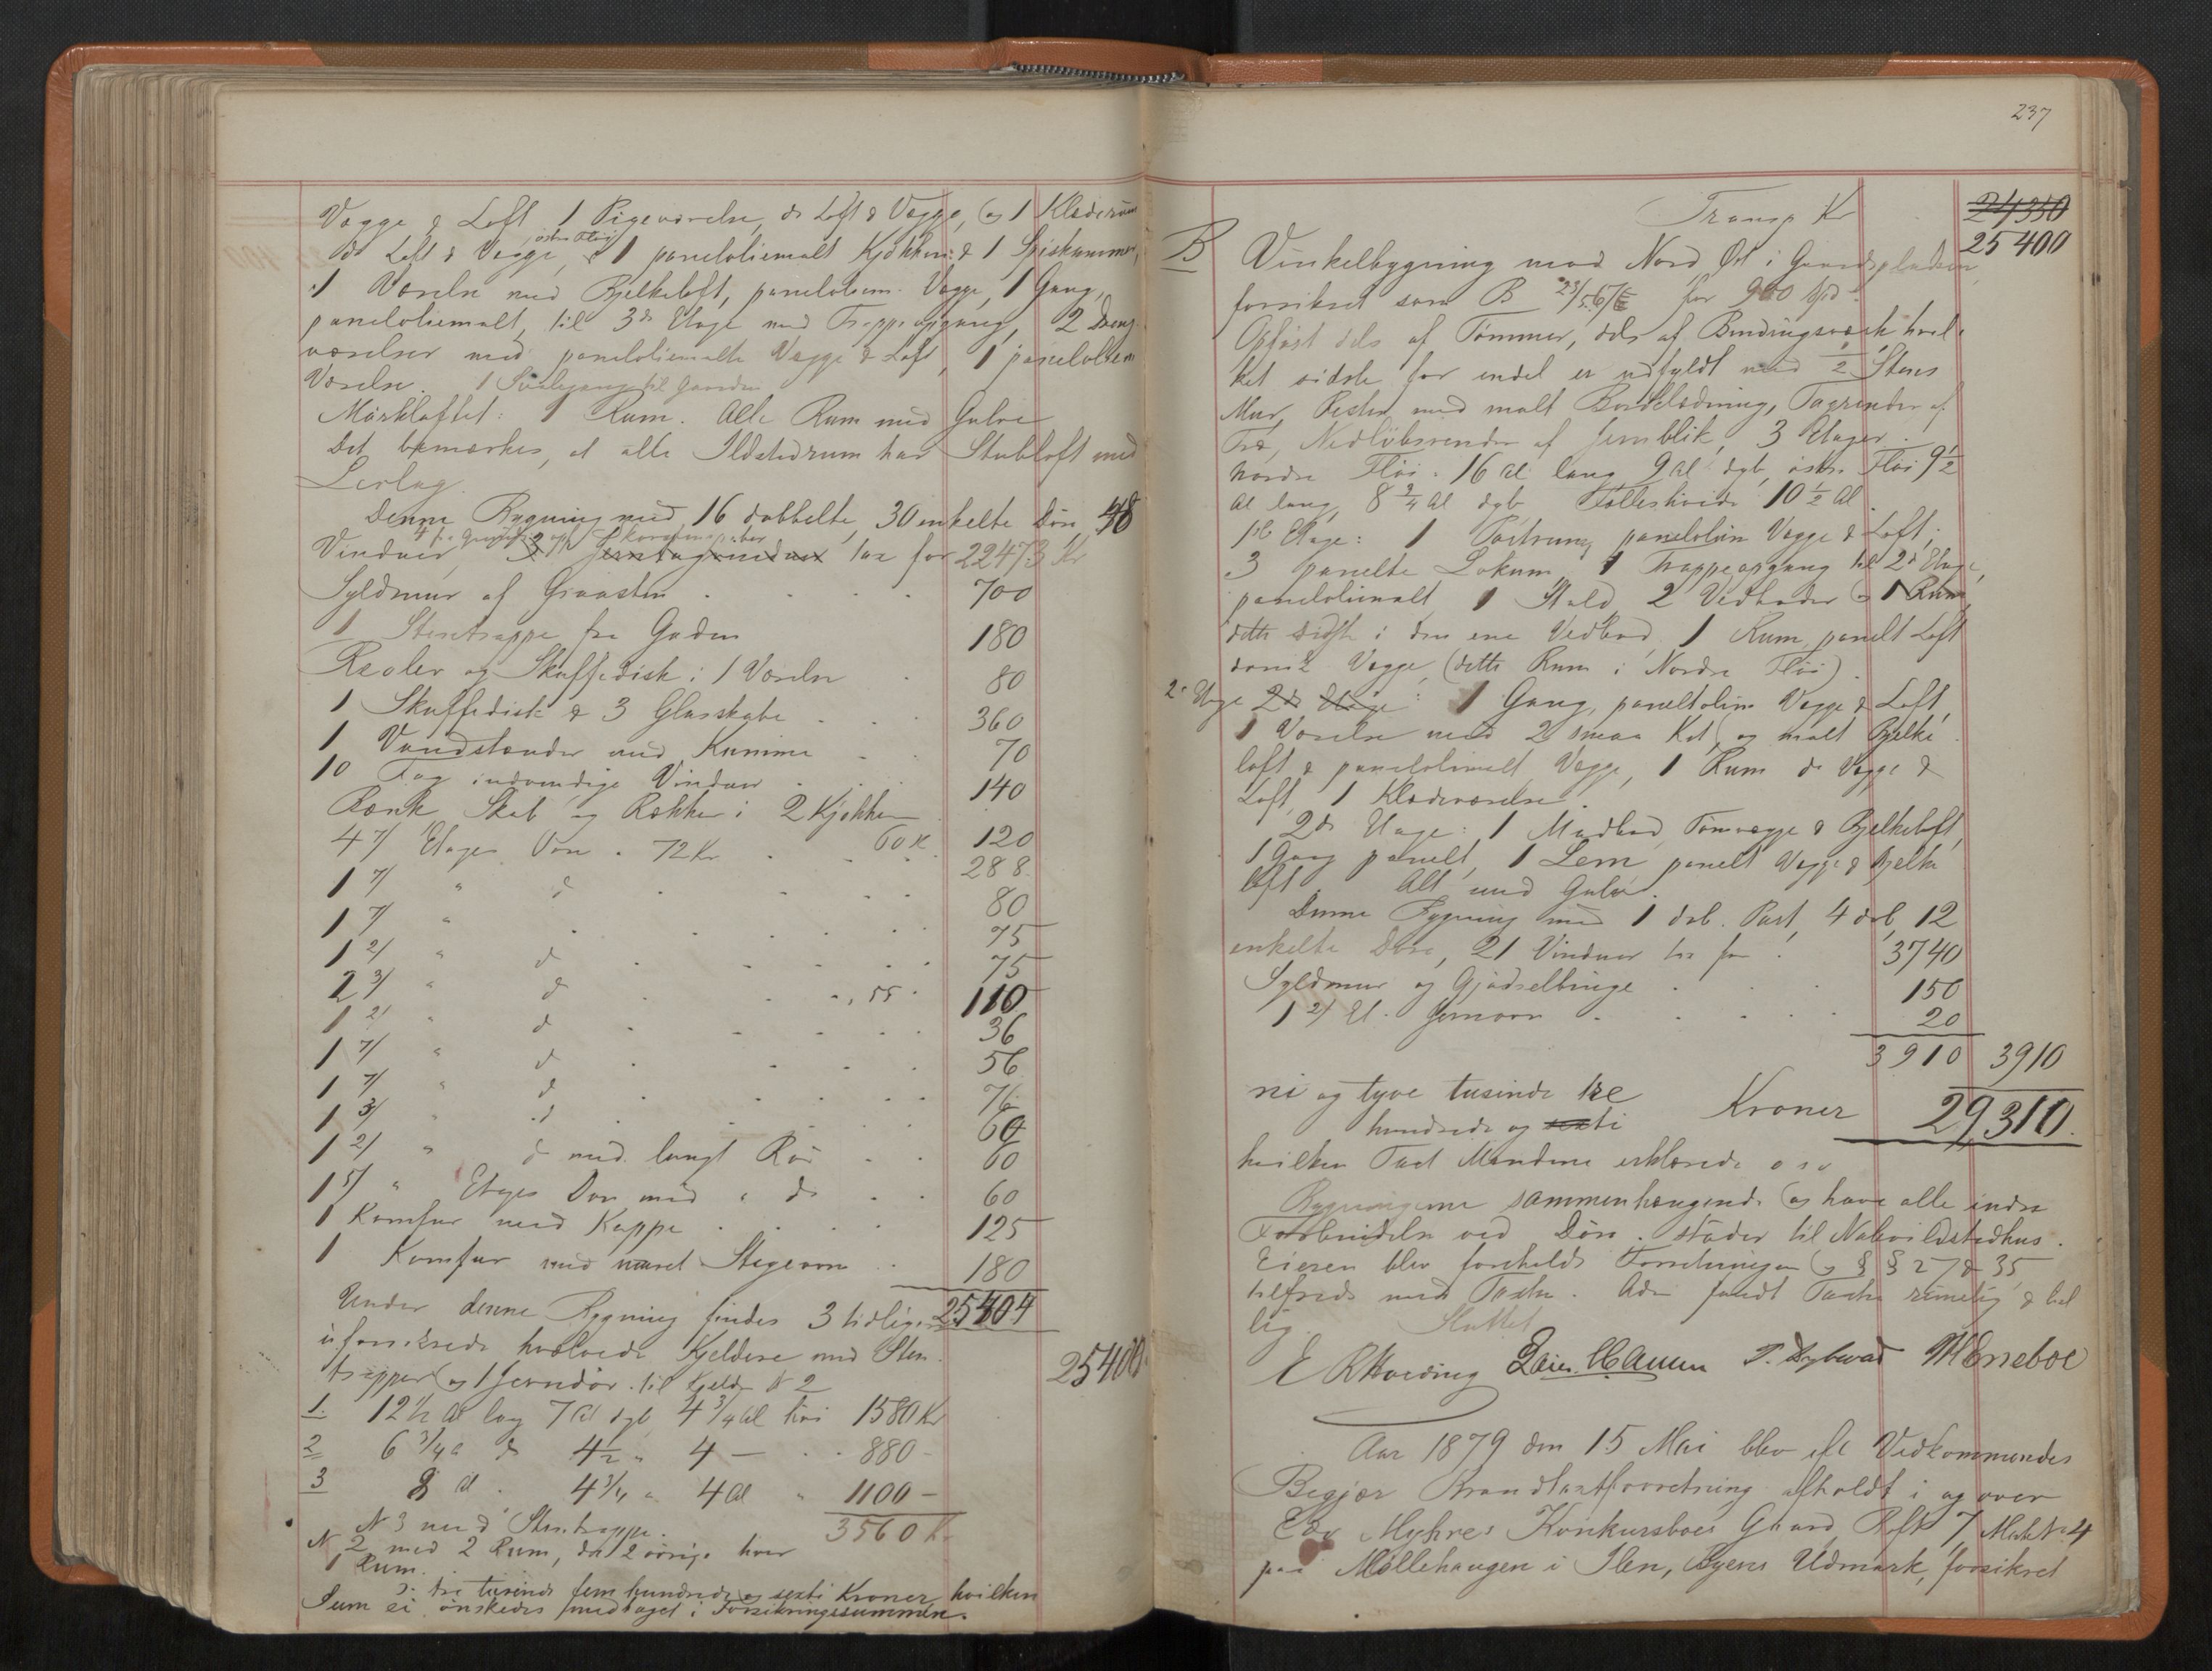 Vægge & Loft, 1 Pigeværelse, do Loft & Vægge, og 1 Klæderum
do Loft & Vægge, 1 paneloliemalt Kjøkken & 1 Spiskammer,
1 Værelse med Bjelkeloft, paneloliem. Vægge, 1 Gang,
paneloliemalt, til 3de Etage med Trappeopgang, 2 Dreng
værelser med paneloliemalte Vægge & Loft, 1 paneloliem
Værelse. 1 Svalegang til Gaarden
Mørkloftet: 1 Rum. Alle Rum med Gulve
Det bemærkes, at alle Ildstedrum har Stubloft med
Lerlag.
Denne Bygning med 16 dobbelte, 30 enkelte Døre, 48
Vinduer, tax for 22473 Kr
Syldmur af Graasten 700
1 Stentrappe fra Gaden 180
Reoler og Skuffedisk i 1 Værelse 80
1 Skuffedisk & 3 Glasskabe 360
1 Vandstander med Kumme 70
10 Fag indvendige Vinduer 140
Bænk Skab og Rækker i 2 Kjøkken 60 K 120
4 7/ Etages Ovn a 72 Kr 288
1 7/ " d 80
1 7/ " 75
1 2/ " d 75
2 3/ " d 55 110
1 2/ " d 36
1 7/ " d 56
1 7/ " d 76
1 3/ " d 60
1 2/ " d med langt Rør 60
1 5/ " Etages Ovn med " do 60
1 Komfur med Kappe 125
1 Komfur med muret Stegeovn 180
25404
Under denne Bygning findes 3 tidligere
uforsikrede hvælvede Kjeldere med Sten
trapper og 1 Jerndør til Kjelder N 2
25400
1. 12½ Al lang 7 Al dyb 4¾ Al høi 1580 Kr
2 6¾ a d 4½ " 4 — 880 -
3 8 al 4¾ " 4 al " 1100 -
3560 Kr
N 3 med Stentrappe.
N 2 med 2 Rum, de 2 øvrige hver
1 Rum.
er tre tusinde fem hundrede og sexti Kroner, hvilken
Sum ei ønskedes medtaget i Forsikringssummen.
237
Transp Kr 24350
25400
B Vinkelbygning mod Nord Øst i Gaardspladsen
forsikret som B for 900 Spd
Opført dels af Tømmer, dels af Bindingsværk, hvil-
ket sidste for endel er udfyldt med ½ Stens
Mur, Resten med malt Bordklædning, Tagrender af
Træ, Nedløbsrender af Jernblik, 3 Etager.
Nordre Fløi: 16 al lang 9 al dyb, østre Fløi 9½
al lang, 8¾ al dyb Fælleshøide 10½ Al
1ste Etage: 1 Portrum, paneloliem Vægge & Loft,
3 panelte Lokum, 1 Trappeopgang til 2d Etage,
paneloliemalt, 1 Stald, 2 Vedboder og 1 Rum,
dette sidste i den ene Vedbod, 1 Rum panelt Loft
Vægge, (dette Rum i Nordre Fløi).
2d Etage 2de Etage: 1 Gang, paneloliem Vægge & Loft,
1 Værelse med 2 smaa Kot, og malt Bjelke
loft & paneloliemalt Vægge, 1 Rum do Vægge &
Loft, 1 Klædeværelse.
2de Etage: 1 Madbod, Tømvægge & Bjelkeloft,
1 Gang panelt, 1 Lem panelt Vægge & Bjelke
loft. Alt med Gulve.
Denne Bygning med 1 dob. Port, 4 dob, 12
enkelte Døre, 21 Vinduer tax for 3740
Syldmur og Gjødselbinge 150
1 2/ Et. Jernovn 20
3910 3910
ni og tyve tusinde tre
hundrede og ti Kroner 29310.
hvilken Taxt Mændene erklærede o s v
Bygningerne sammenhængende og have alle indre
Forbindelse ved Døre. støder til Naboildstedhus.
Eieren blev foreholdt Forretningen og §§ 27 & 35
tilfreds med Taxten. Adm fandt Taxten rimelig & bil
lig. Sluttet
E R Hoeding P. Dybwad
Aar 1879 den 15 Mai blev eft Vedkommendes
Begjær Brandtaxtforretning afholdt i og over
Myhres Konkursboes Gaard, Rft 7, Matr N 4
paa Møllehaugen i Ilen, Byens Udmark, forsikret